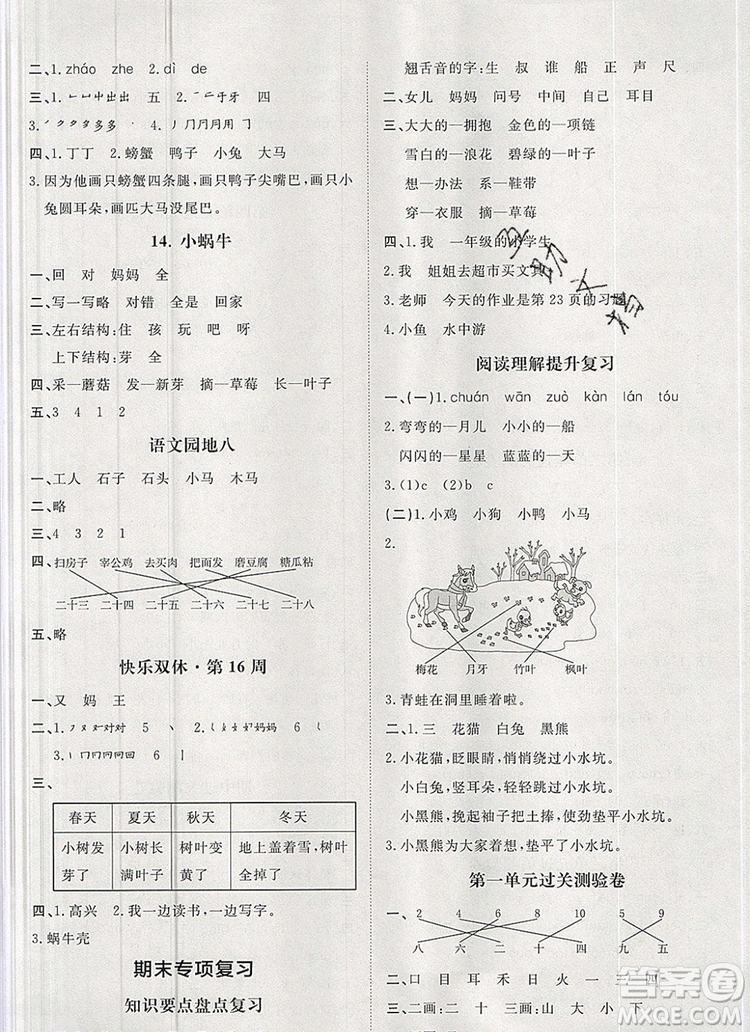 二、1. zháo zhe 2. dì de
三、1. 出 五 2. 牙 四
3. 多 4. 用
四、1. 丁丁 2. 螃蟹 鸭子 小兔 大马
3. 因为他画只螃蟹四条腿,画只鸭子尖嘴巴,画只小
兔圆耳朵,画匹大马没尾巴。
14. 小蜗牛
一、回 对 妈妈 全
二、写一写略 对错 全是 回家
三、左右结构:住 孩 玩 吧 呀
上下结构:芽 全
四、采—蘑菇 发—新芽 摘—草莓 长—叶子
五、3 4 1 2
语文园地八
一、工人 石子 石头 小马 木马
二、略
三、4 3 2 1
四、扫房子 宰公鸡 去买肉 把面发 磨豆腐 糖瓜粘
二十三 二十四 二十五 二十六 二十七 二十八
五、略
快乐双休·第 16 周
一、又 妈 王
二、1. 对 5 丶 2. 妈 6
3. 回 6
三、
春天 夏天 秋天 冬天
小树发 小树长 小树叶变 地上盖着雪,树叶
芽了 满叶子 黄了 全掉了
四、1. 高兴 2. 我一边读书,一边写字。
3. 蜗牛壳
期末专项复习
知识要点盘点复习
翘舌音的字:生 叔 谁 船 正 声 尺
二、女儿 妈妈 问号 中间 自己 耳目
三、大大的—拥抱 金色的—项链
雪白的—浪花 碧绿的—叶子
想—办法 系—鞋带
穿—衣服 摘—草莓
四、1. 我 一年级的小学生
2. 我 姐姐去超市买文具
3. 老师 今天的作业是第 23 页的习题
4. 小鱼 水中游
阅读理解提升复习
一、(一)1. chuán wān zuò kàn lán tóu
2. 弯弯的—月儿 小小的—船
闪闪的—星星 蓝蓝的—天
3. (1)c (2)b c
(二)1. 小鸡 小狗 小鸭 小马
2.
梅花 月牙 竹叶 枫叶
3. 青蛙在洞里睡着啦。
二、1. 三 花猫 白兔 黑熊
2. 小花猫,眨眼睛,悄悄绕过小水坑。
小白兔,竖耳朵,轻轻跳过小水坑。
小黑熊,挽起袖子把土捧,使劲垫平小水坑。
3. 小黑熊为大家着想,垫平了小水坑。
第一单元过关测验卷
一、2 4 6 8 10 5 9
八 六 二 十 四 九 五
二、口 目 耳 禾 日 火 一 三 四
三、二画:二 十 三画:山 大 小 下